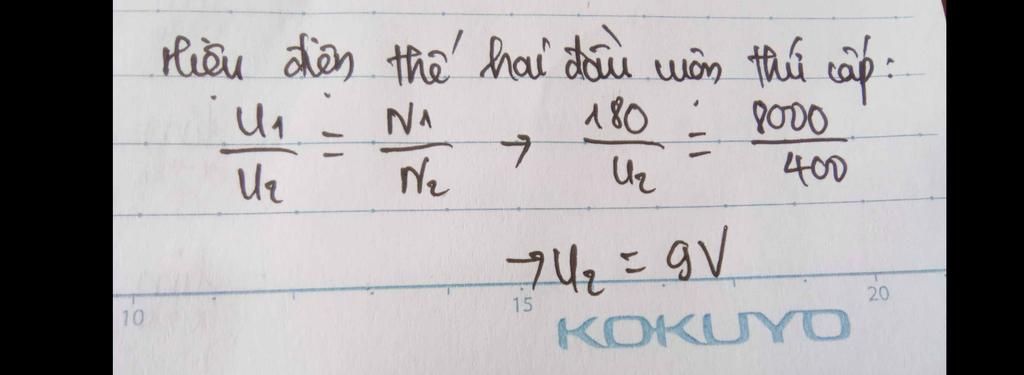 Hiệu điện thế hai đầu cuộn thứ cấp:
U1/U2 = N1/N2 → 180/U2 = 8000/400
→ U2 = 9V
10 15 20
KOKUYO